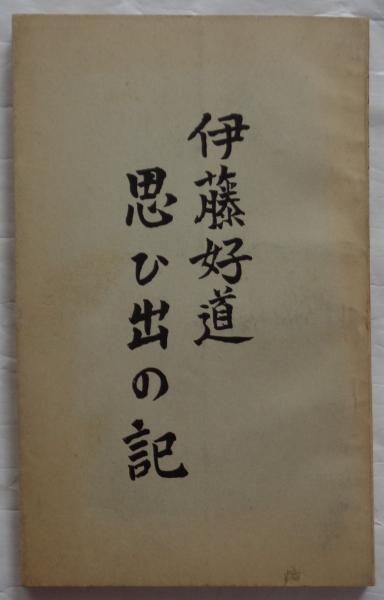 伊藤好道
思ひ出の記